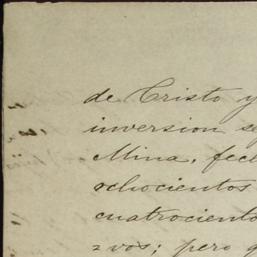 de Cristo y
inversion se
Mina, fech
ochocientos
cuatrociento
vos; pero q